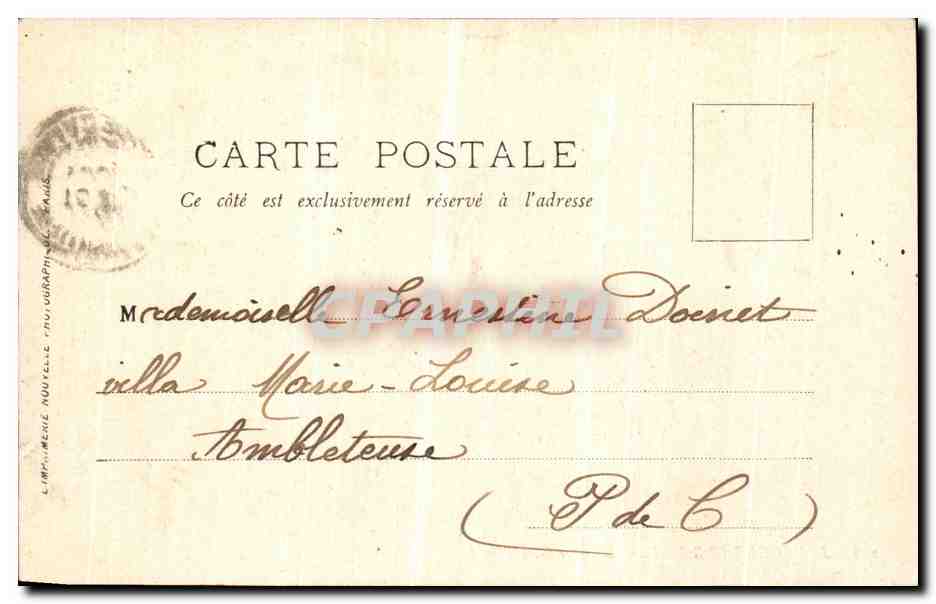 CARTE POSTALE
Ce côté est exclusivement réservé à l'adresse
L'IMPRIMERIE NOUVELLE PHOTOGRAPHIQUE PARIS
Mademoiselle Ernestine Doinet
villa Marie-Louise
Ambleteuse
(P de C)
CPAPHIL